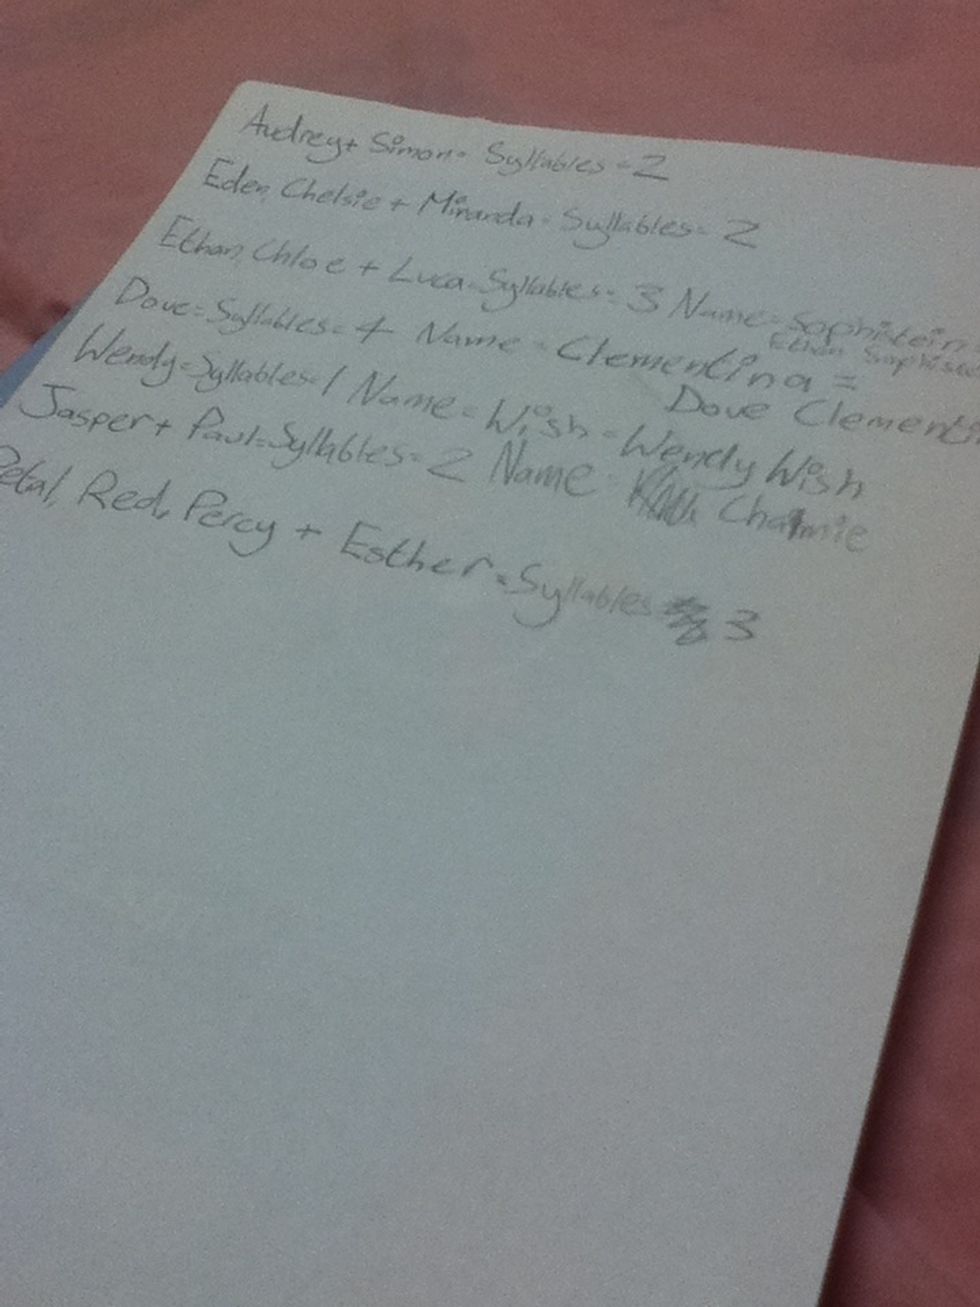 Audrey + Simon = Syllables = 2
Eden, Chelsie + Miranda = Syllables = 2
Ethan, Chloe + Luca = Syllables = 3 Name = Sophistein
Ethan
Dove = Syllables = 4 Name = Clementina =
Dove
Wendy = Syllables = 1 Name = Wish = Wendy Wish
Jasper + Paul = Syllables = 2 Name =
Petal, Red, Percy + Esther = Syllables 3